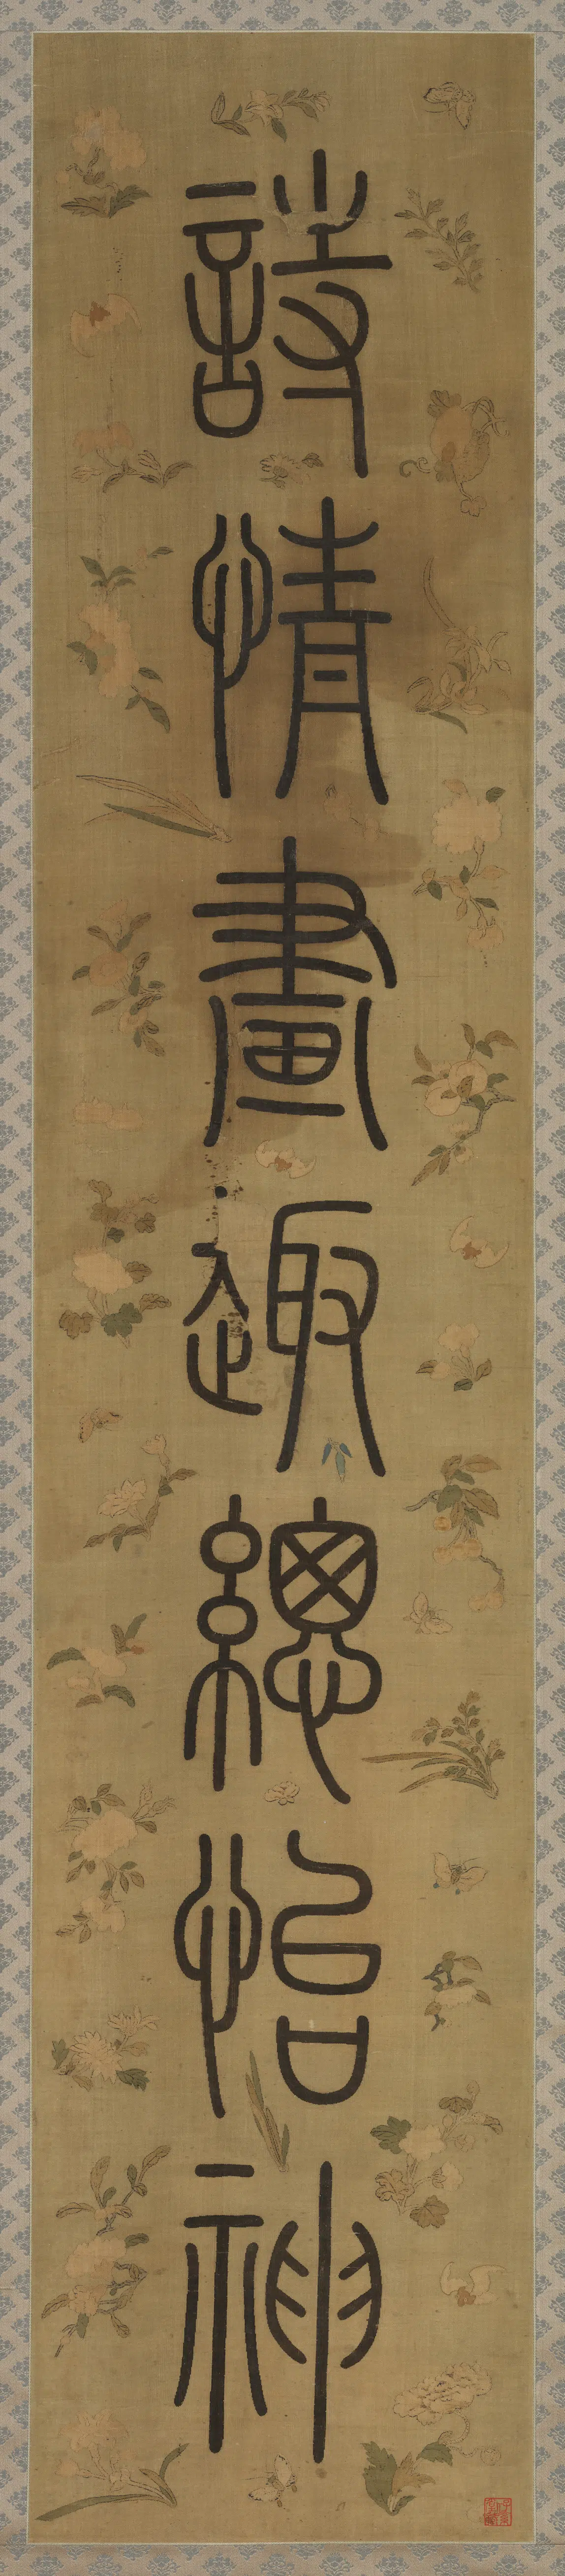 詩情畫趣總怡神